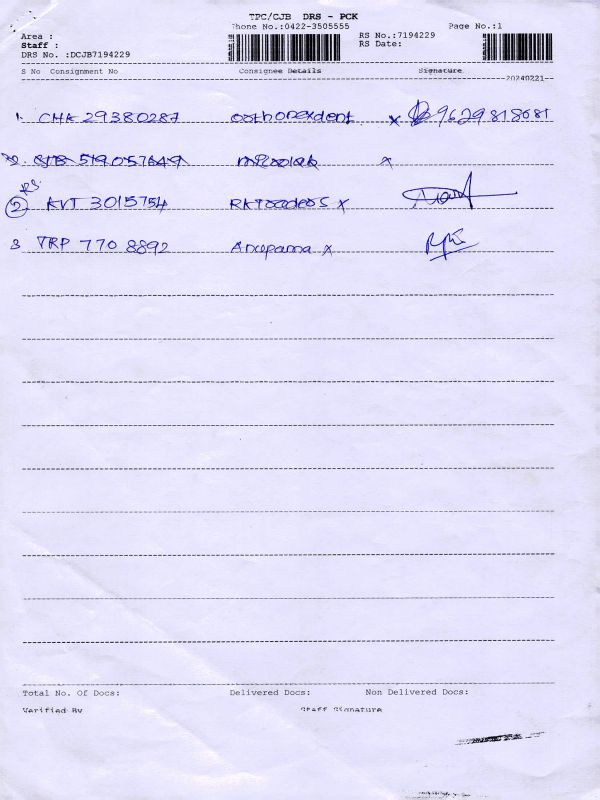 TPC/CJB DRS - PCK
Phone No.:0422-3505555 Page No.:1
Area : RS No.:7194229
Staff : RS Date:
DRS No. :DCJB7194229
S No Consignment No Consignee Details Signature
20240221
1. CHA 29380287 Orthorexdent x 9629818681
519057649 x
RS
2 KVT 3015754 RK Traders x
3 TRP 770 8892 Anupama x
Total No. Of Docs: Delivered Docs: Non Delivered Docs:
Verified By Staff Signature